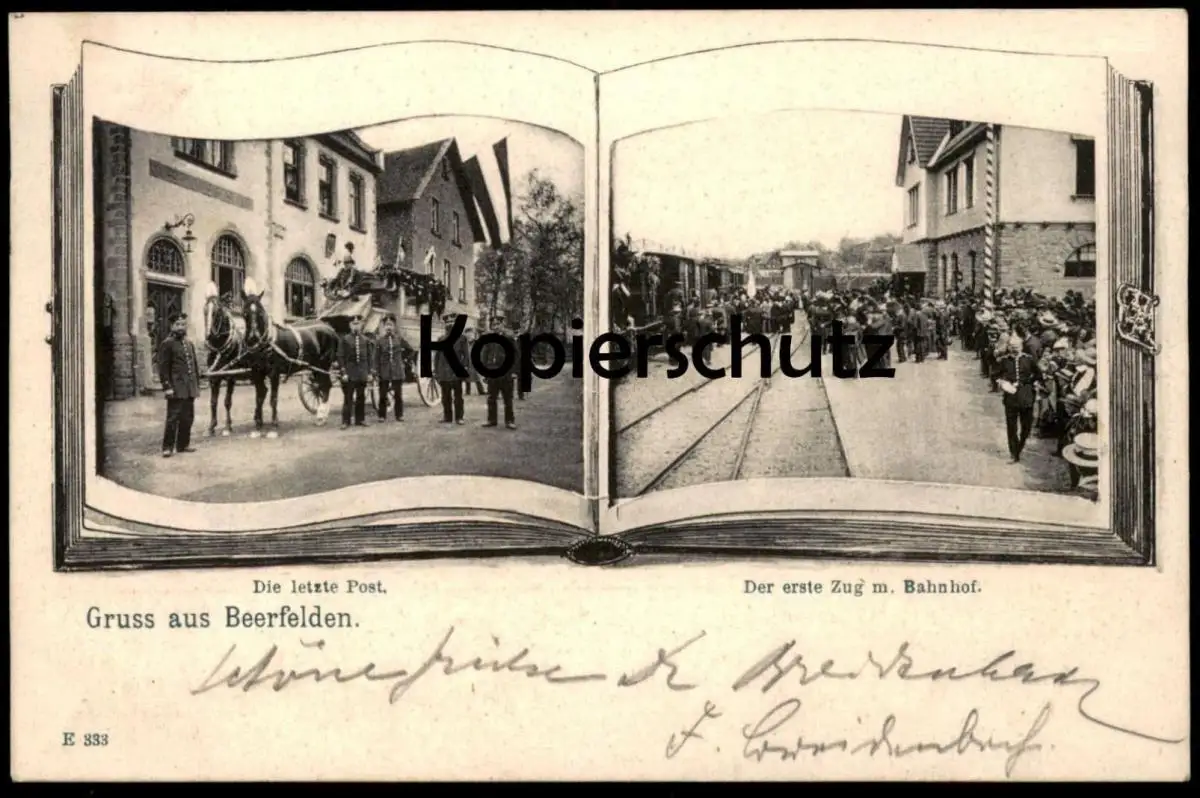 Kopierschutz
Die letzte Post.
Der erste Zug m. Bahnhof.
Gruss aus Beerfelden.
Schöne Grüsse Dr
F.
E 333